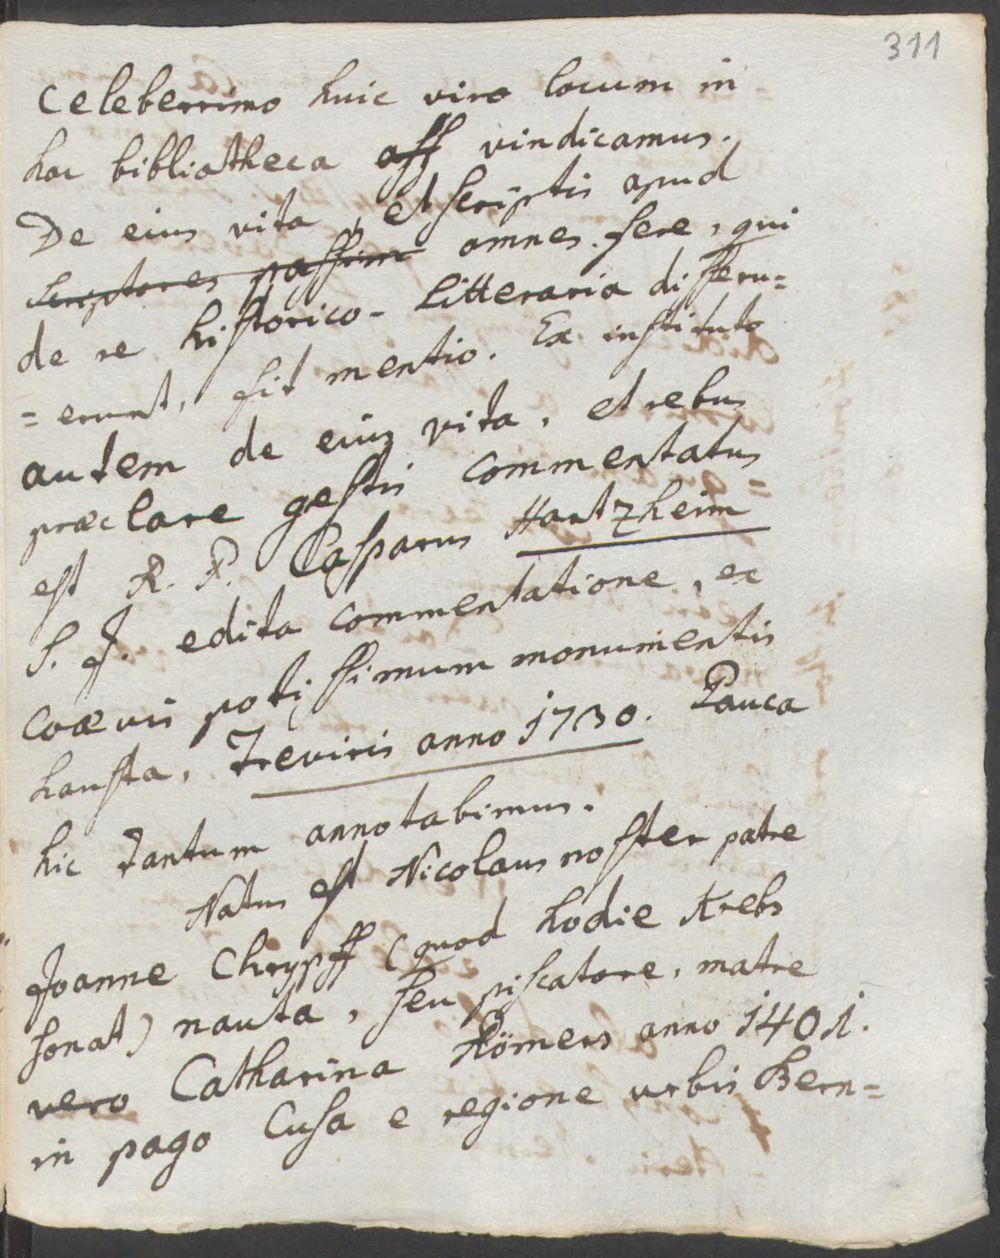 311
Celeberrimo huic viro locum in
hac bibliotheca aff vindicamus.
De eius vita, et scriptis apud
scriptores passim omnes fere, qui
de re historico-litteraria disseru=
=erunt, fit mentio. Ex instituto
autem de eius vita, et rebus
præclare gestis commentatus
est R. P. Casparus Hartzheim
S. J. edita commentatione, ex
coævis potissimum monumentis
hausta, Treviris anno 1730. Pauca
hic tantum annotabimus.
Natus est Nicolaus noster patre
Joanne Chrypff (quod hodie Krebs
sonat) nauta, seu piscatore, matre
vero Catharina Römers anno 1401.
in pago Cusa e regione urbis Bern=